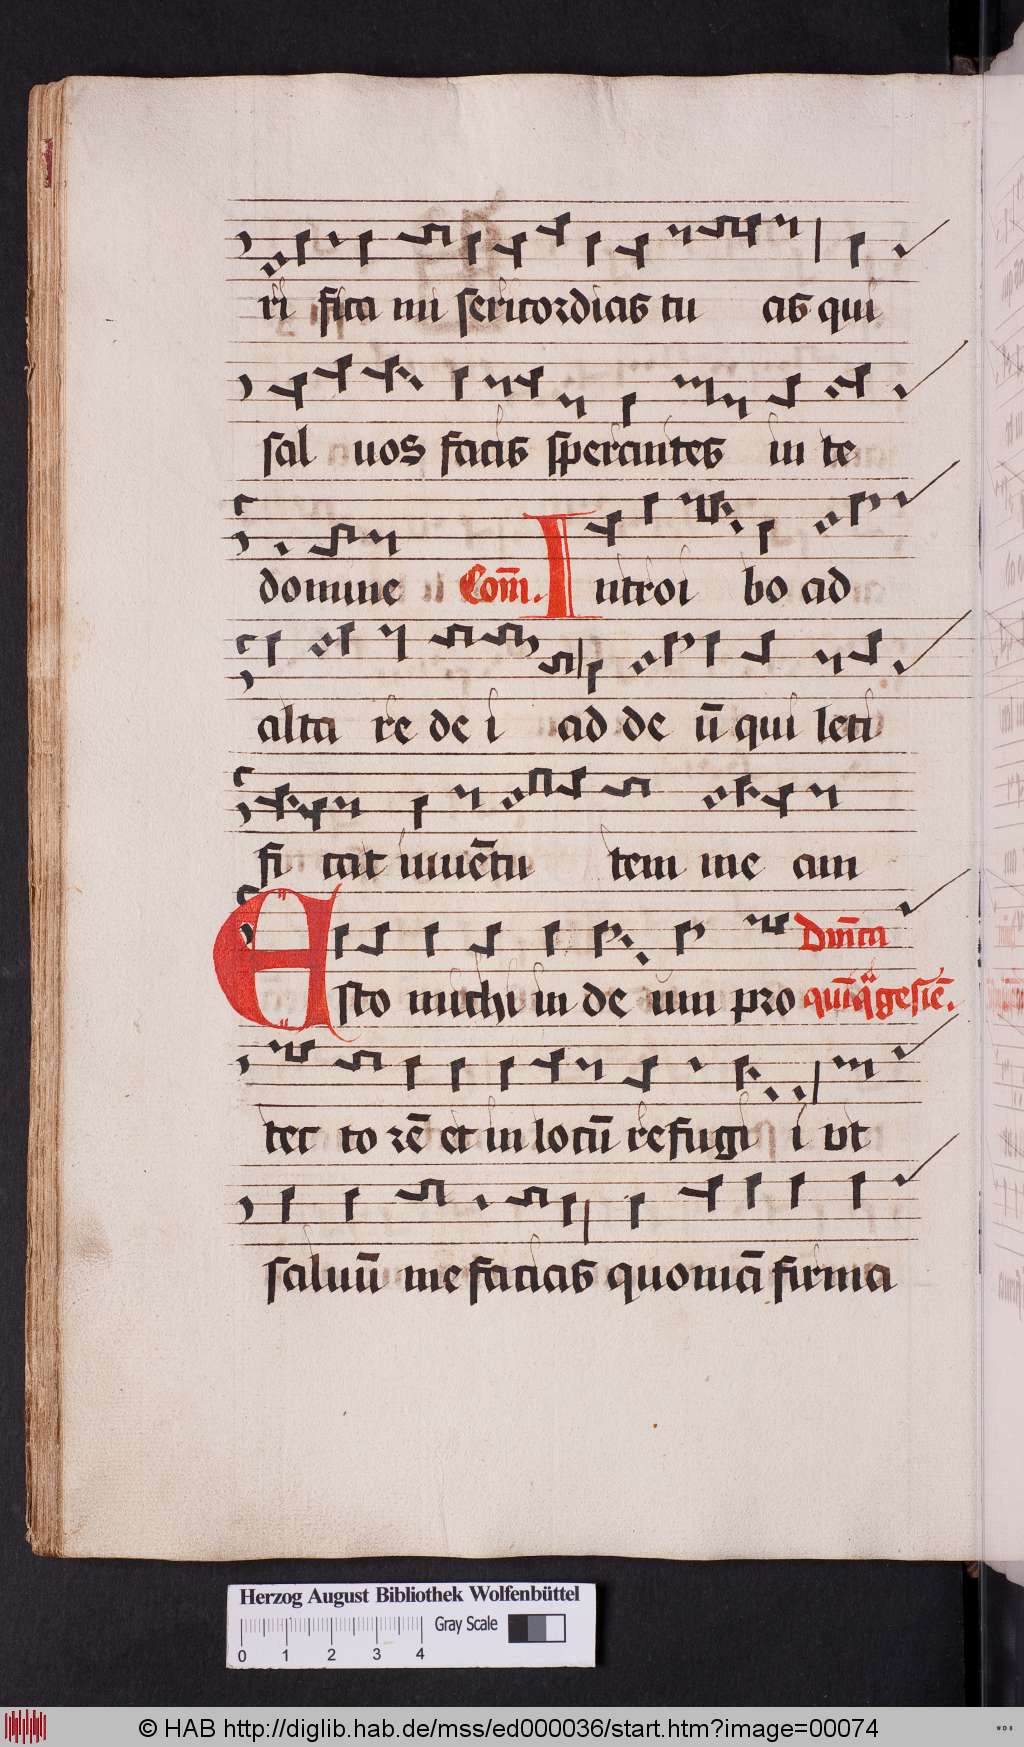 ri fica mi sericordias tu as qui
sal uos facis sperantes in te
domine Com̄. Introi bo ad
alta re de i ad de ū qui leti
fi cat iuuētu tem me am
Esto michi in de um pro
Dn̄ica quīqͣgesiē.
tec to rē et in locū refugi i vt
saluū me facias quoniā firma
Herzog August Bibliothek Wolfenbüttel
Gray Scale
0 1 2 3 4
© HAB http://diglib.hab.de/mss/ed000036/start.htm?image=00074